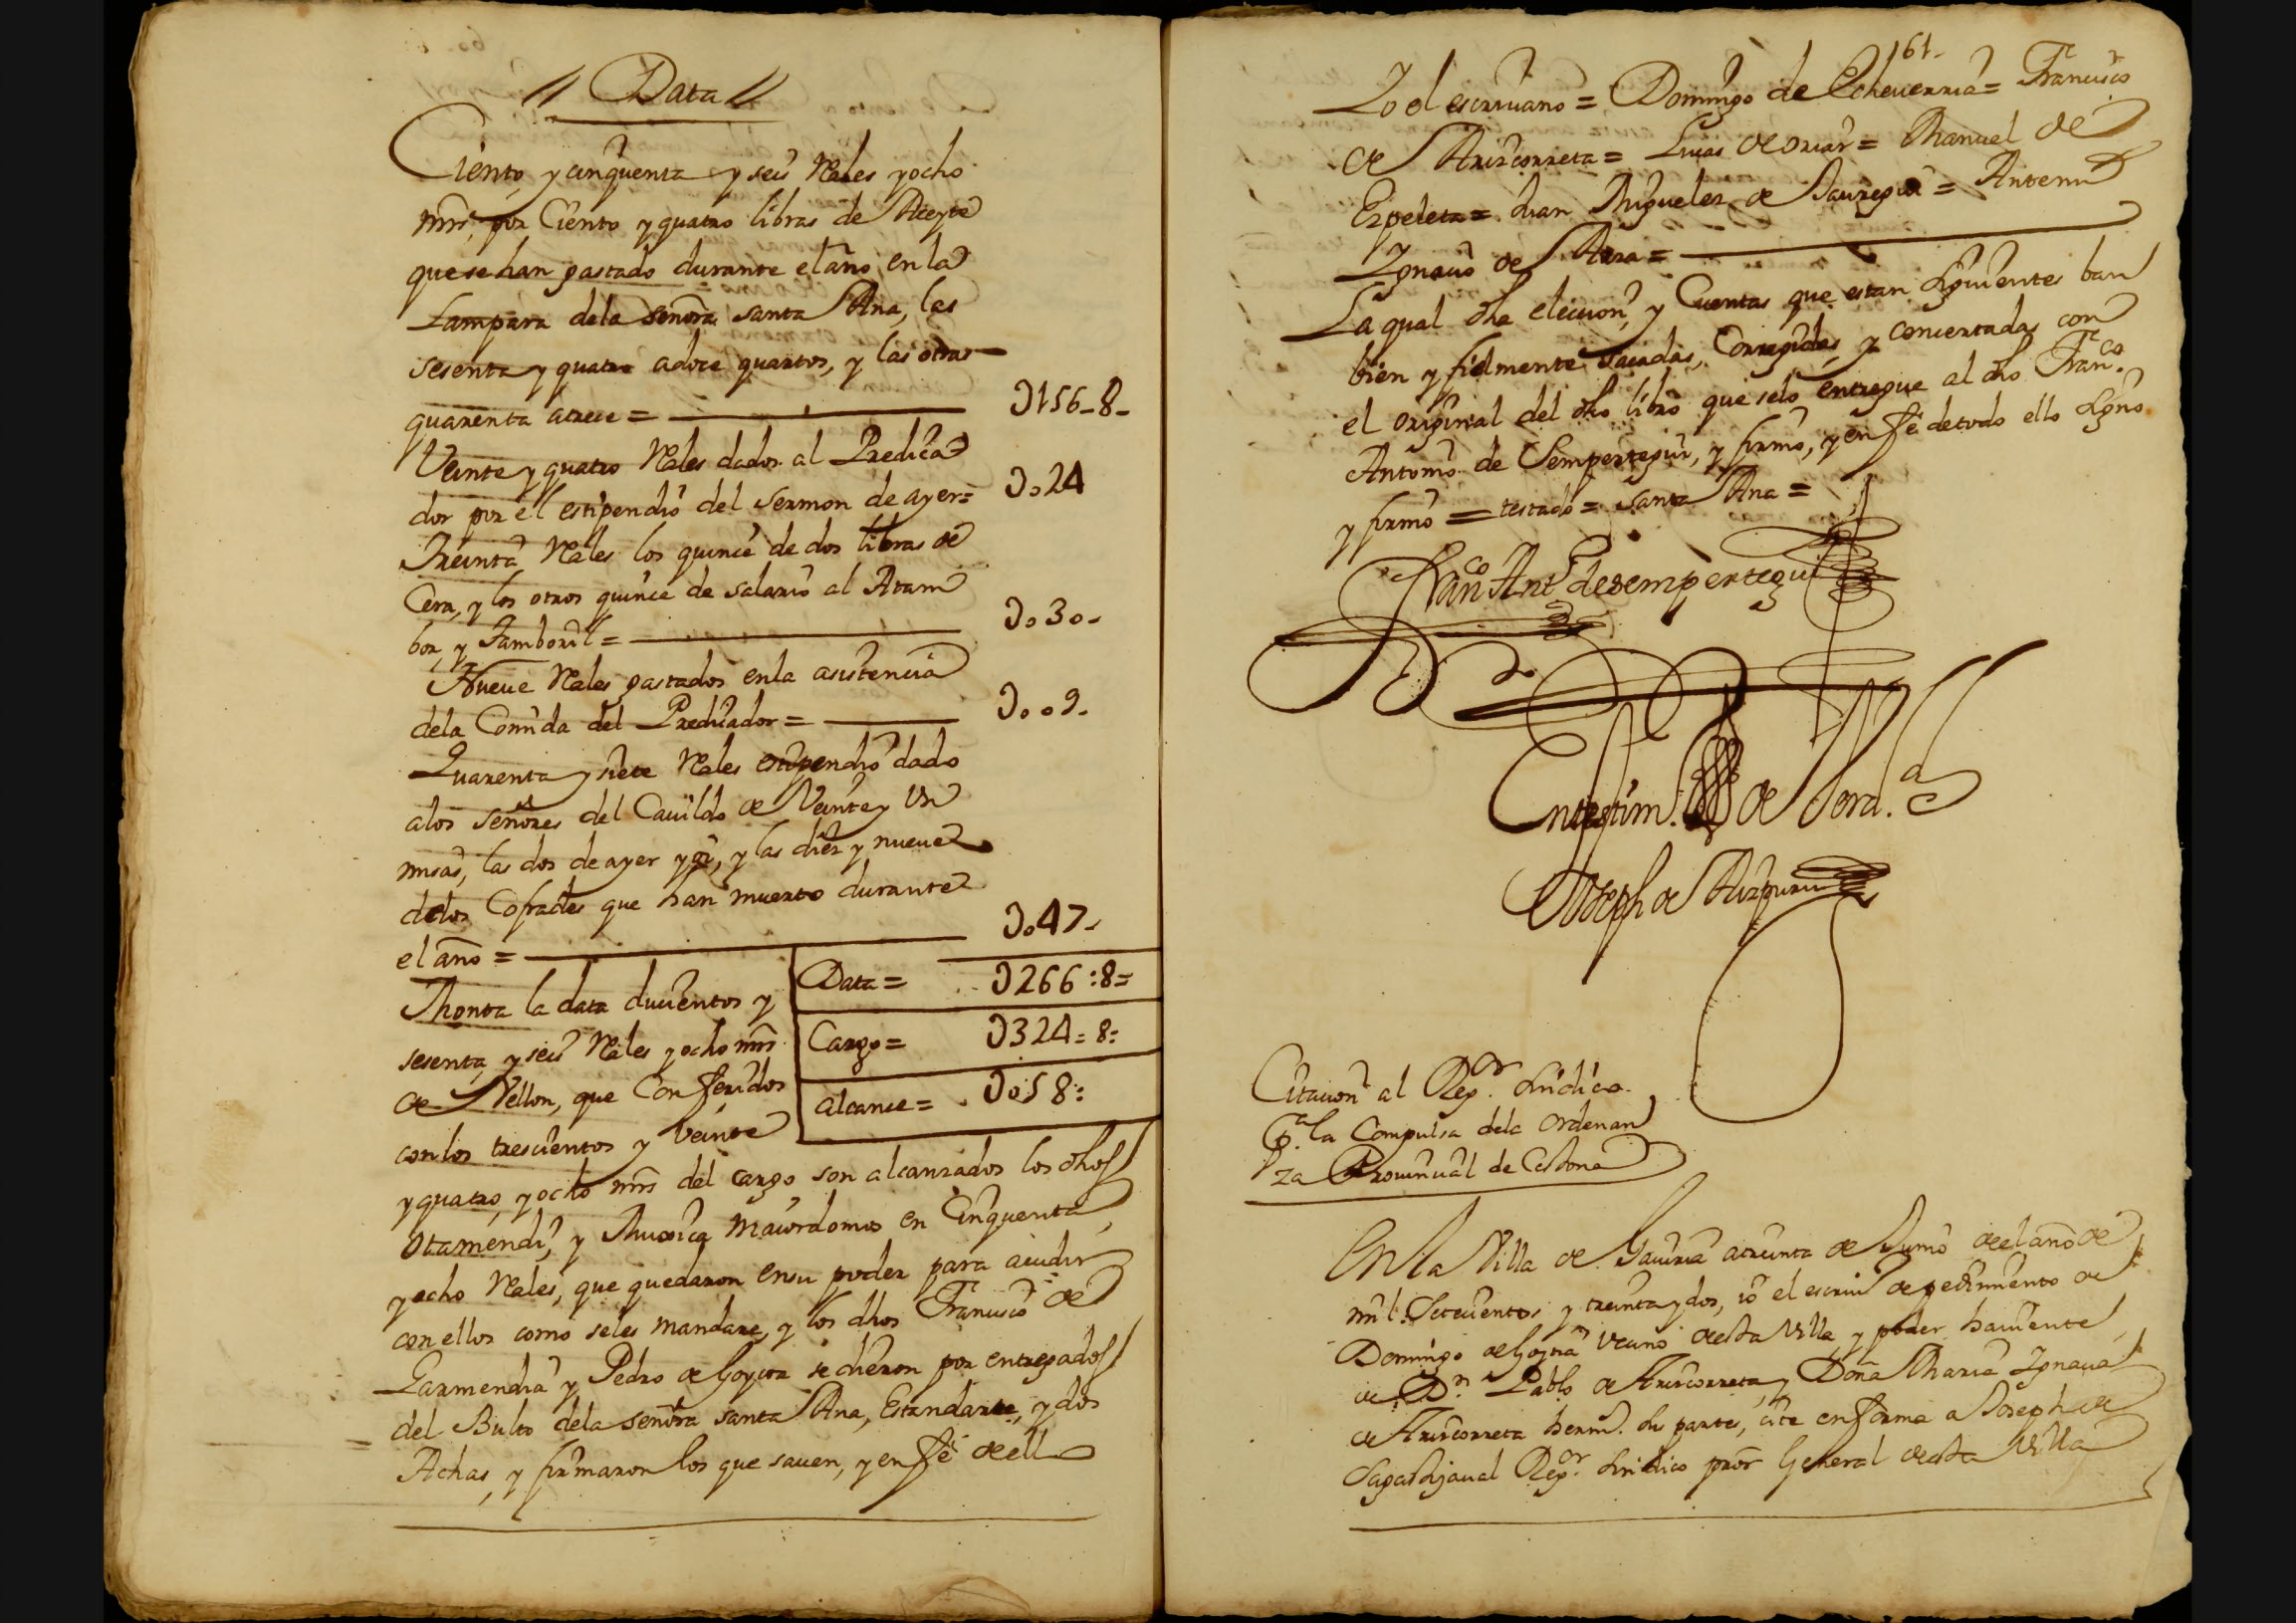 Data
Ciento, y cinquenta y seis Rales y ocho
mrs, por Ciento y quatro libras de Aceyte
que se han gastado durante el año en la
Lampara dela Señora santa Ana, las
sesenta y quatro adoce quartos, y las otras
quarenta atrece = 156-8-
Veinte y quatro Rales dados al Predica
dor por el estipendio del Sermon de ayer= 24
Treinta Rales los quince de dos libras de
Cera, y los otros quince de salario al Atam
bor, y Tamboril = 30-
Nueue Rales gastados enla asistencia
dela Comida del Predicador = 09-
Quarenta y siete Rales estipendio dado
alos señores del Cauildo de Veinte y Un
misas, las dos de ayer y oi, y las diez y nueue
delos Cofrades que han muerto durante
el año = 47-
Data = 266:8=
Cargo = 324=8=
alcance = 58:
Monta la data ducientos y
sesenta y seis Rales y ocho mrs
de Vellon, que Conferidos
conlos trescientos y Veinte
y quatro, y ocho mrs del cargo son alcanzados los dhos
Otamendi, y Muxica Maiordomos en Cinquenta
y ocho Rales, que quedaron ensu poder para acudir
con ellos como seles mandare, y los dhos Francisco de
Garmendia y Pedro de Goytia se dieron por entregados
del Bulto dela señora santa Ana, Estandarte, y dos
Achas, y firmaron los que sauen, y en Fe de ell
161-
Yo el escriuano = Domingo de Echeuerria = Francisco
de Arizcorreta = Lucas de = Manuel de
Ezpeleta = Juan Miguelez de Jauregui = Antemi
Ignacio de =
La qual dha elecion, y Cuentas que estan siguientes ban
bien y fielmente sacadas, Corregidas, y concertadas con
el original del dho libro que selo entregue al dho Franco.
Antonio de Sempertegui, y firmo, y en Fe detodo ello signo
y firmo = testado = Santa Ana =
Franco Anto de sempertegui
En testim.o de Verd.d
Joseph de Aizpuru
Citacion al Regor. Sindico
pa. la Compulsa dela Ordenan
za Prouincial de Cestona
En la Villa de Gauiria atreinta de Junio de el año de
mil Setecientos y treinta y dos, io el escriu.o de pedimento de
Domingo de Goytia Vecino desta Villa, y poder hauiente
de Dn. Pablo de Arizcorreta, y Doña Maria Ignacia
de Arizcorreta herm.s su parte, cite en forma a Joseph de
Sagastizaual Regor. Sindico pror General desta Villa